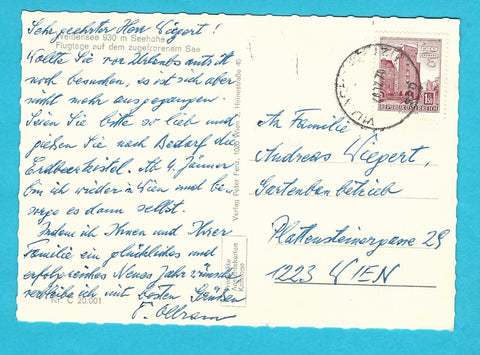 Sehr geehrter Herr Wiegert!
Weißensee 930 m Seehöhe
Flugtage auf dem zugefrorenem See
Wollte Sie vor Urlaubsantritt
noch besuchen, es ist sich aber
nicht mehr ausgegangen.
Seien Sie bitte so lieb und
gießen Sie nach Bedarf die
Erdbeerkistel. Ab 4. Jänner
bin ich wieder in Wien und be-
sorge es dann selbst.
Indem ich Ihnen und Ihrer
Familie ein glückliches und
erfolgreiches Neues Jahr wünsche
verbleibe ich mit besten Grüßen
Nr. C 20.001
Verlag Peter Ferk, 1020 Wien 2, Heinestraße 40
Ansichtskarten
REPUBLIK ÖSTERREICH
An Familie
Andreas Wiegert,
Gartenbaubetrieb
Plattensteinergasse 29
1223 WIEN